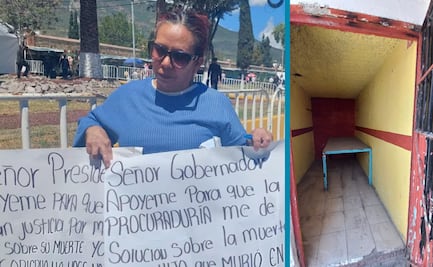 eñor Preside
oyeme PARA que
an justicia Por m
SobRe su MUERTE YO
Señor Gobernador
Apoyeme Para que la
PROCURADURÍA me de
Solucion sobre la muerte
HIJO que MURIO EN